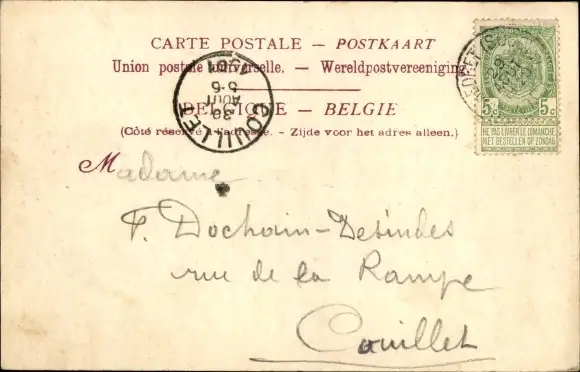 CARTE POSTALE — POSTKAART
Union postale universelle. — Wereldpostvereeniging
BELGIQUE — BELGIE
(Côté réservé à l'adresse. - Zijde voor het adres alleen.)
COUILLET
30
AOUT
5-6
1901
5c 5c
NE PAS LIVRER LE DIMANCHE
NIET BESTELLEN OP ZONDAG
Madame
F. Dochain-Desindes
rue de la Rampe
Couillet